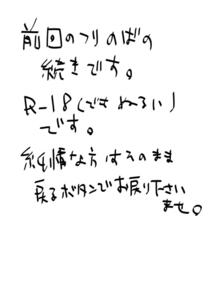 前回のつりのばの
続きです。
R-18(でもぬるい)
です。
純情な方はそのまま
戻るボタンでお戻り下さい
ませ。